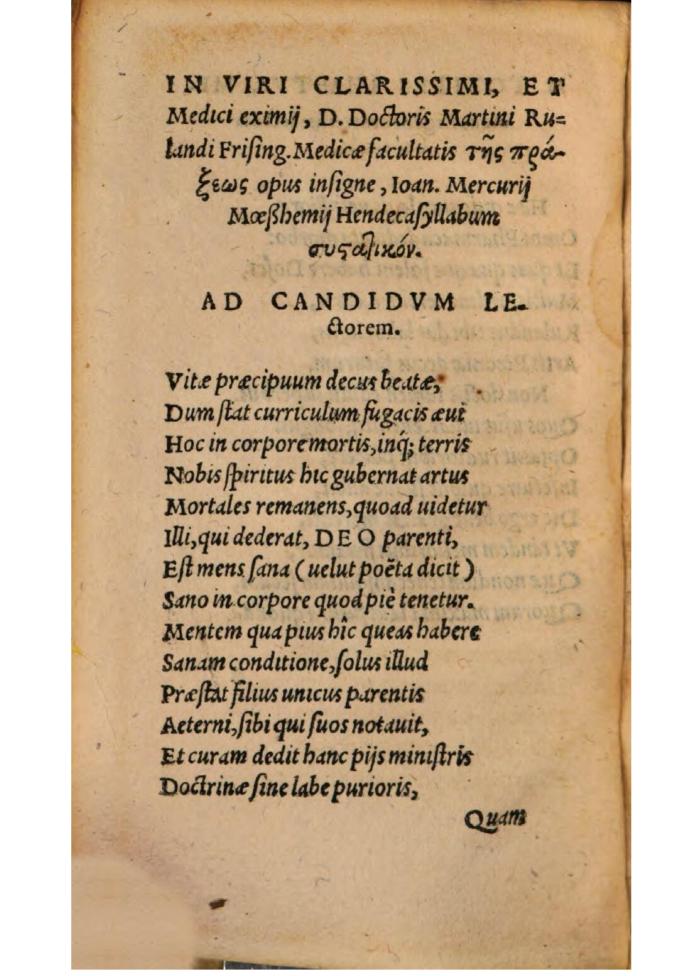 IN VIRI CLARISSIMI, ET
Medici eximij, D. Doctoris Martini Ru=
landi Frising. Medicæ facultatis τῆς πρά-
ξεως opus insigne, Ioan. Mercurij
Mœßhemij Hendecasyllabum
συςατικόν.
AD CANDIDVM LE-
ctorem.
Vitæ præcipuum decus beatæ,
Dum stat curriculum fugacis æui
Hoc in corpore mortis, inq; terris
Nobis spiritus hic gubernat artus
Mortales remanens, quoad uidetur
Illi, qui dederat, DEO parenti,
Est mens sana (uelut poëta dicit)
Sano in corpore quod piè tenetur.
Mentem qua pius hîc queas habere
Sanam conditione, solus illud
Præstat filius unicus parentis
Aeterni, sibi qui suos notauit,
Et curam dedit hanc pijs ministris
Doctrinæ sine labe purioris,
Quam